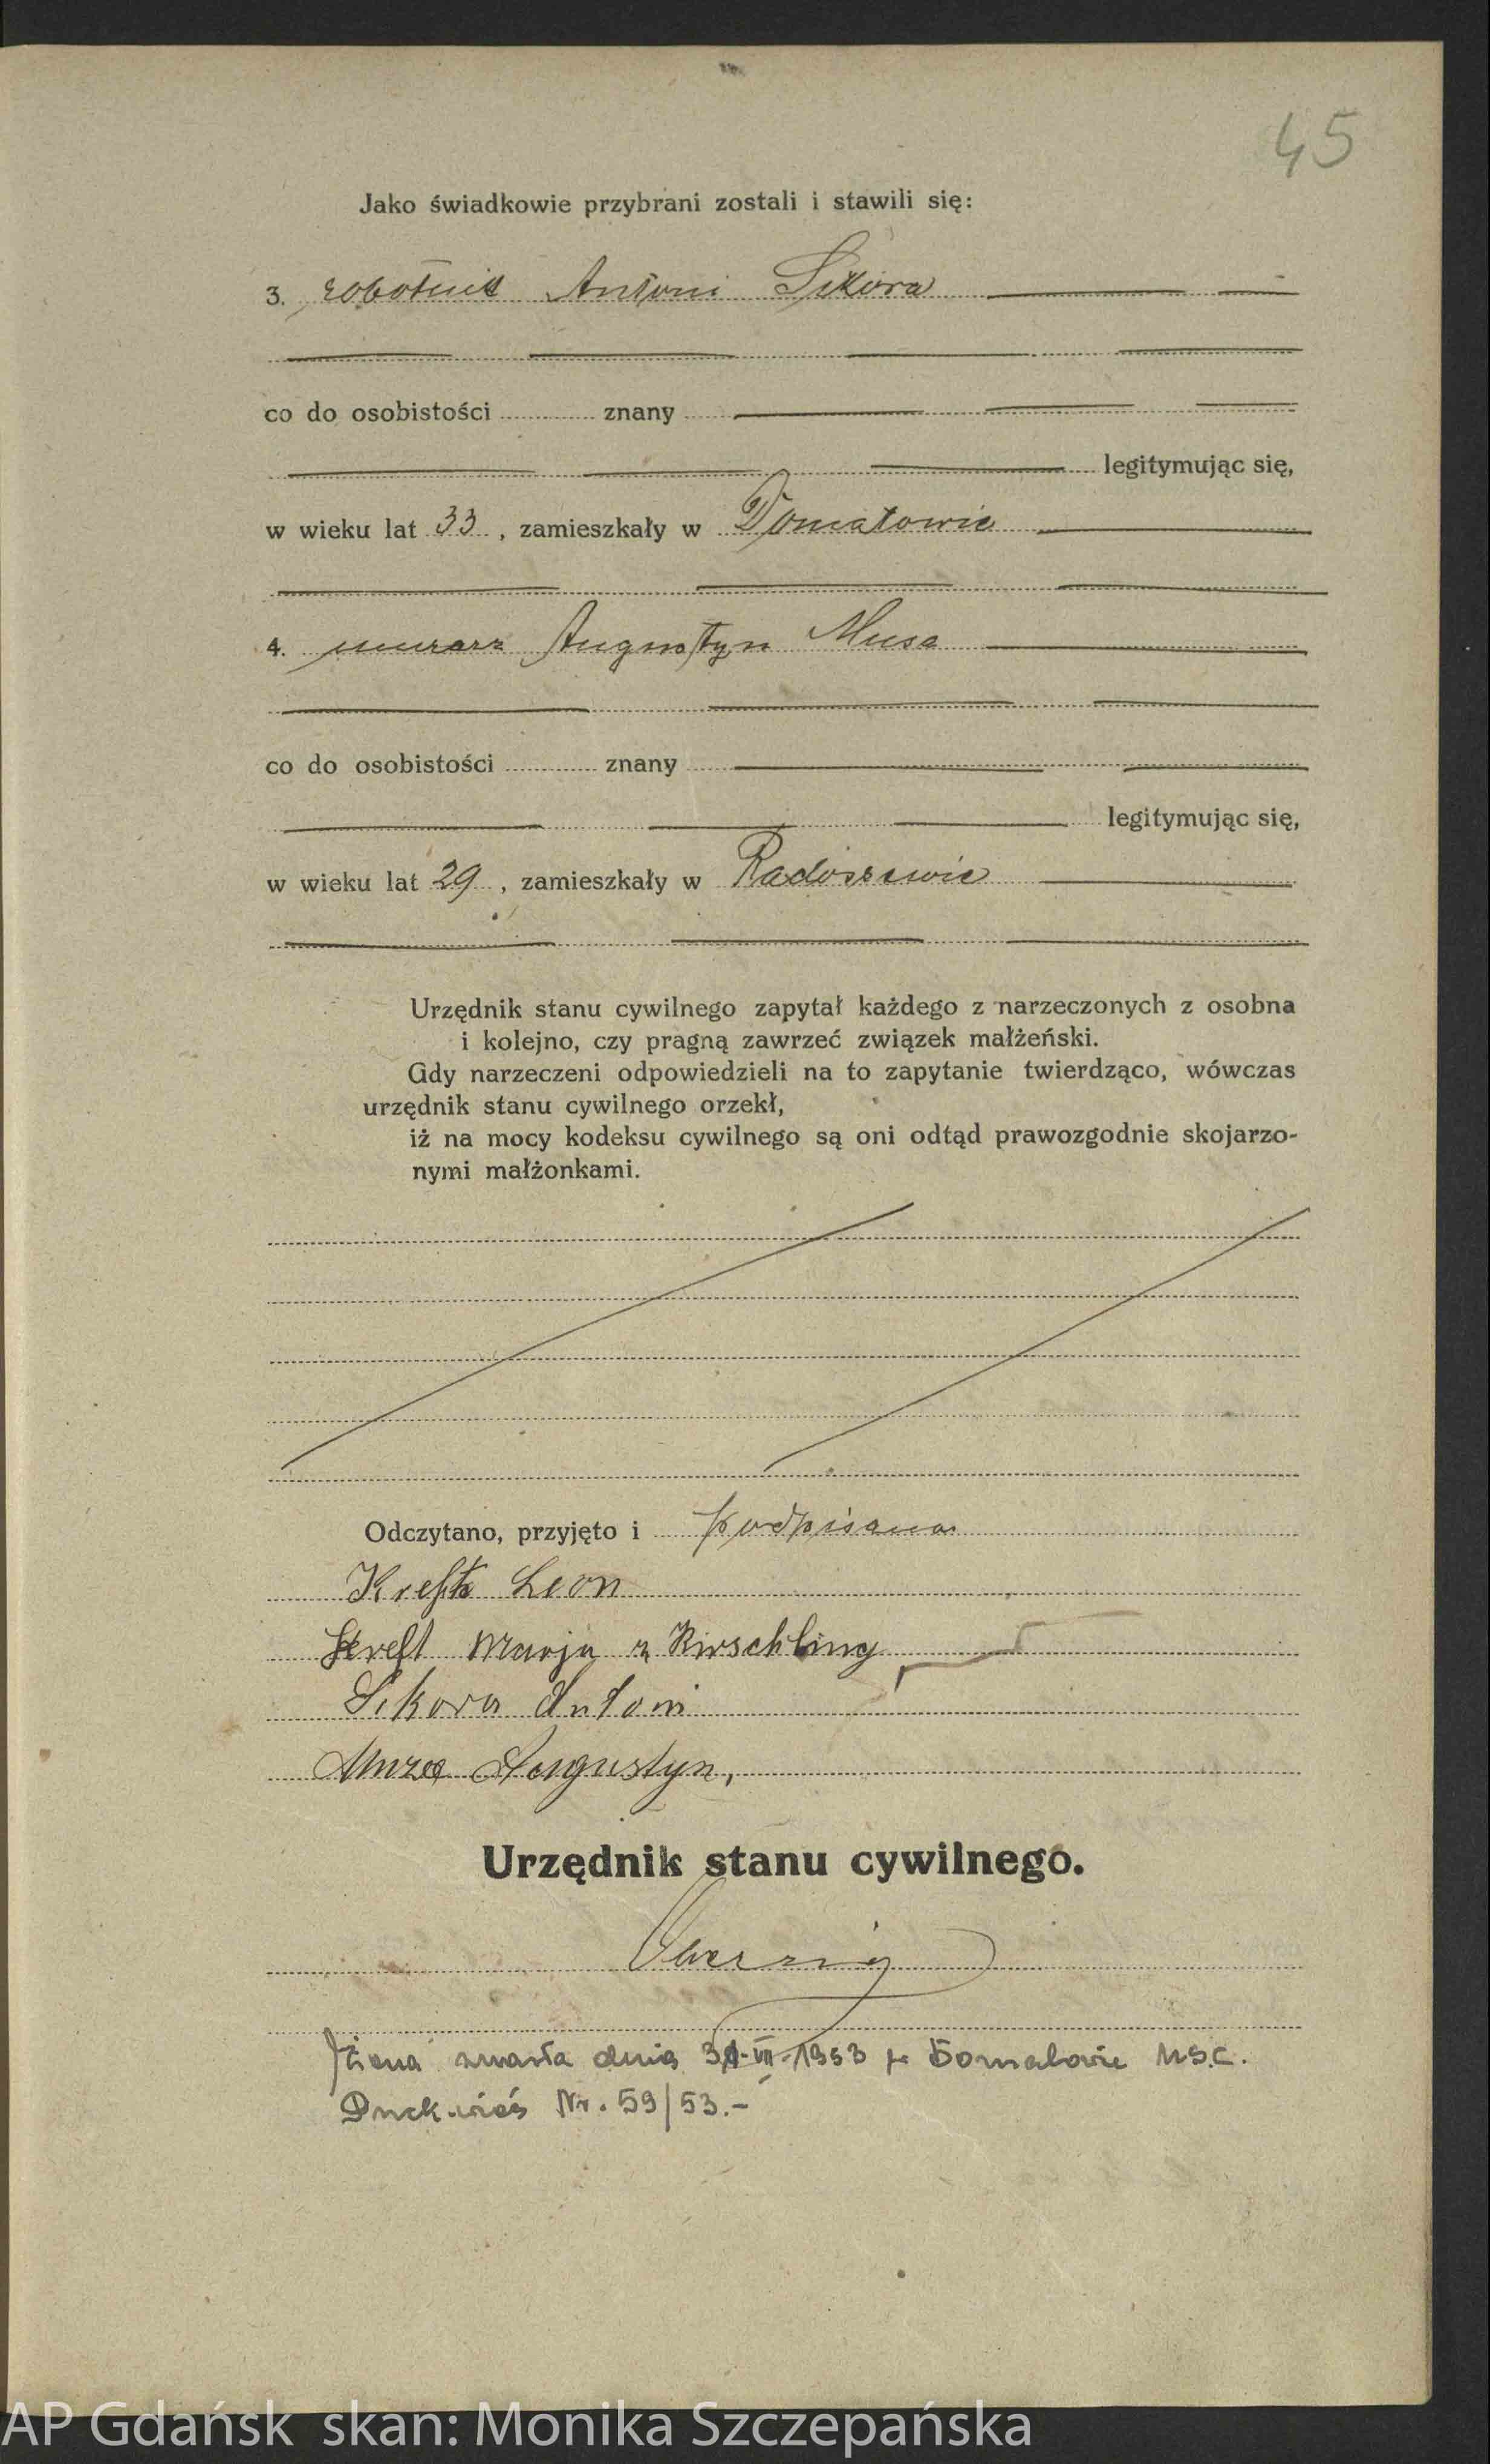 45
Jako świadkowie przybrani zostali i stawili się:
3. robotnik Antoni Sikora
co do osobistości znany
legitymując się,
w wieku lat 33, zamieszkały w Domatowie
4. murarz Augustyn Musa
co do osobistości znany
legitymując się,
w wieku lat 29, zamieszkały w Radoszewie
Urzędnik stanu cywilnego zapytał każdego z narzeczonych z osobna
i kolejno, czy pragną zawrzeć związek małżeński.
Gdy narzeczeni odpowiedzieli na to zapytanie twierdząco, wówczas
urzędnik stanu cywilnego orzekł,
iż na mocy kodeksu cywilnego są oni odtąd prawozgodnie skojarzo-
nymi małżonkami.
Odczytano, przyjęto i podpisano
Kreft Leon
Kreft Marja z Kirschling
Sikora Antoni
Muza Augustyn,
Urzędnik stanu cywilnego.
Żona zmarła dnia VII. 1953 w Domatowie U.S.C.
Puck-wieś Nr. 59/53.-
AP Gdańsk skan: Monika Szczepańska